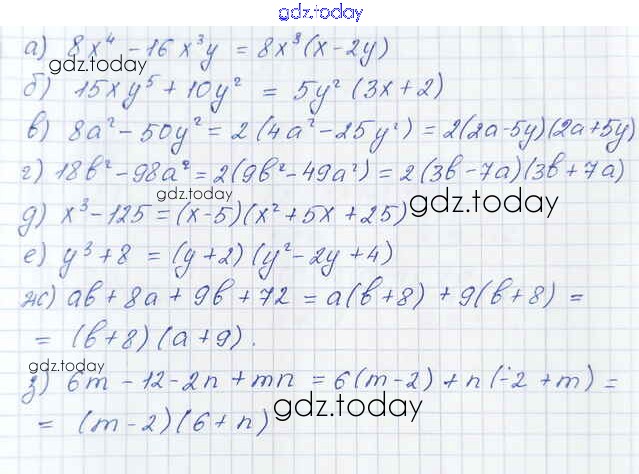 gdz.today
а) 8x⁴ - 16x³y = 8x³(x - 2y)
gdz.today
б) 15xy⁵ + 10y² = 5y² (3x + 2)
в) 8a² - 50y² = 2 (4a² - 25y²) = 2(2a - 5y)(2a + 5y)
г) 18b² - 98a² = 2(9b² - 49a²) = 2(3b - 7a)(3b + 7a)
gdz.today
д) x³ - 125 = (x - 5)(x² + 5x + 25)
gdz.today
е) y³ + 8 = (y + 2)(y² - 2y + 4)
ж) ab + 8a + 9b + 72 = a(b + 8) + 9(b + 8) =
= (b + 8)(a + 9).
gdz.today
з) 6m - 12 - 2n + mn = 6(m - 2) + n(-2 + m) =
= (m - 2)(6 + n)
gdz.today